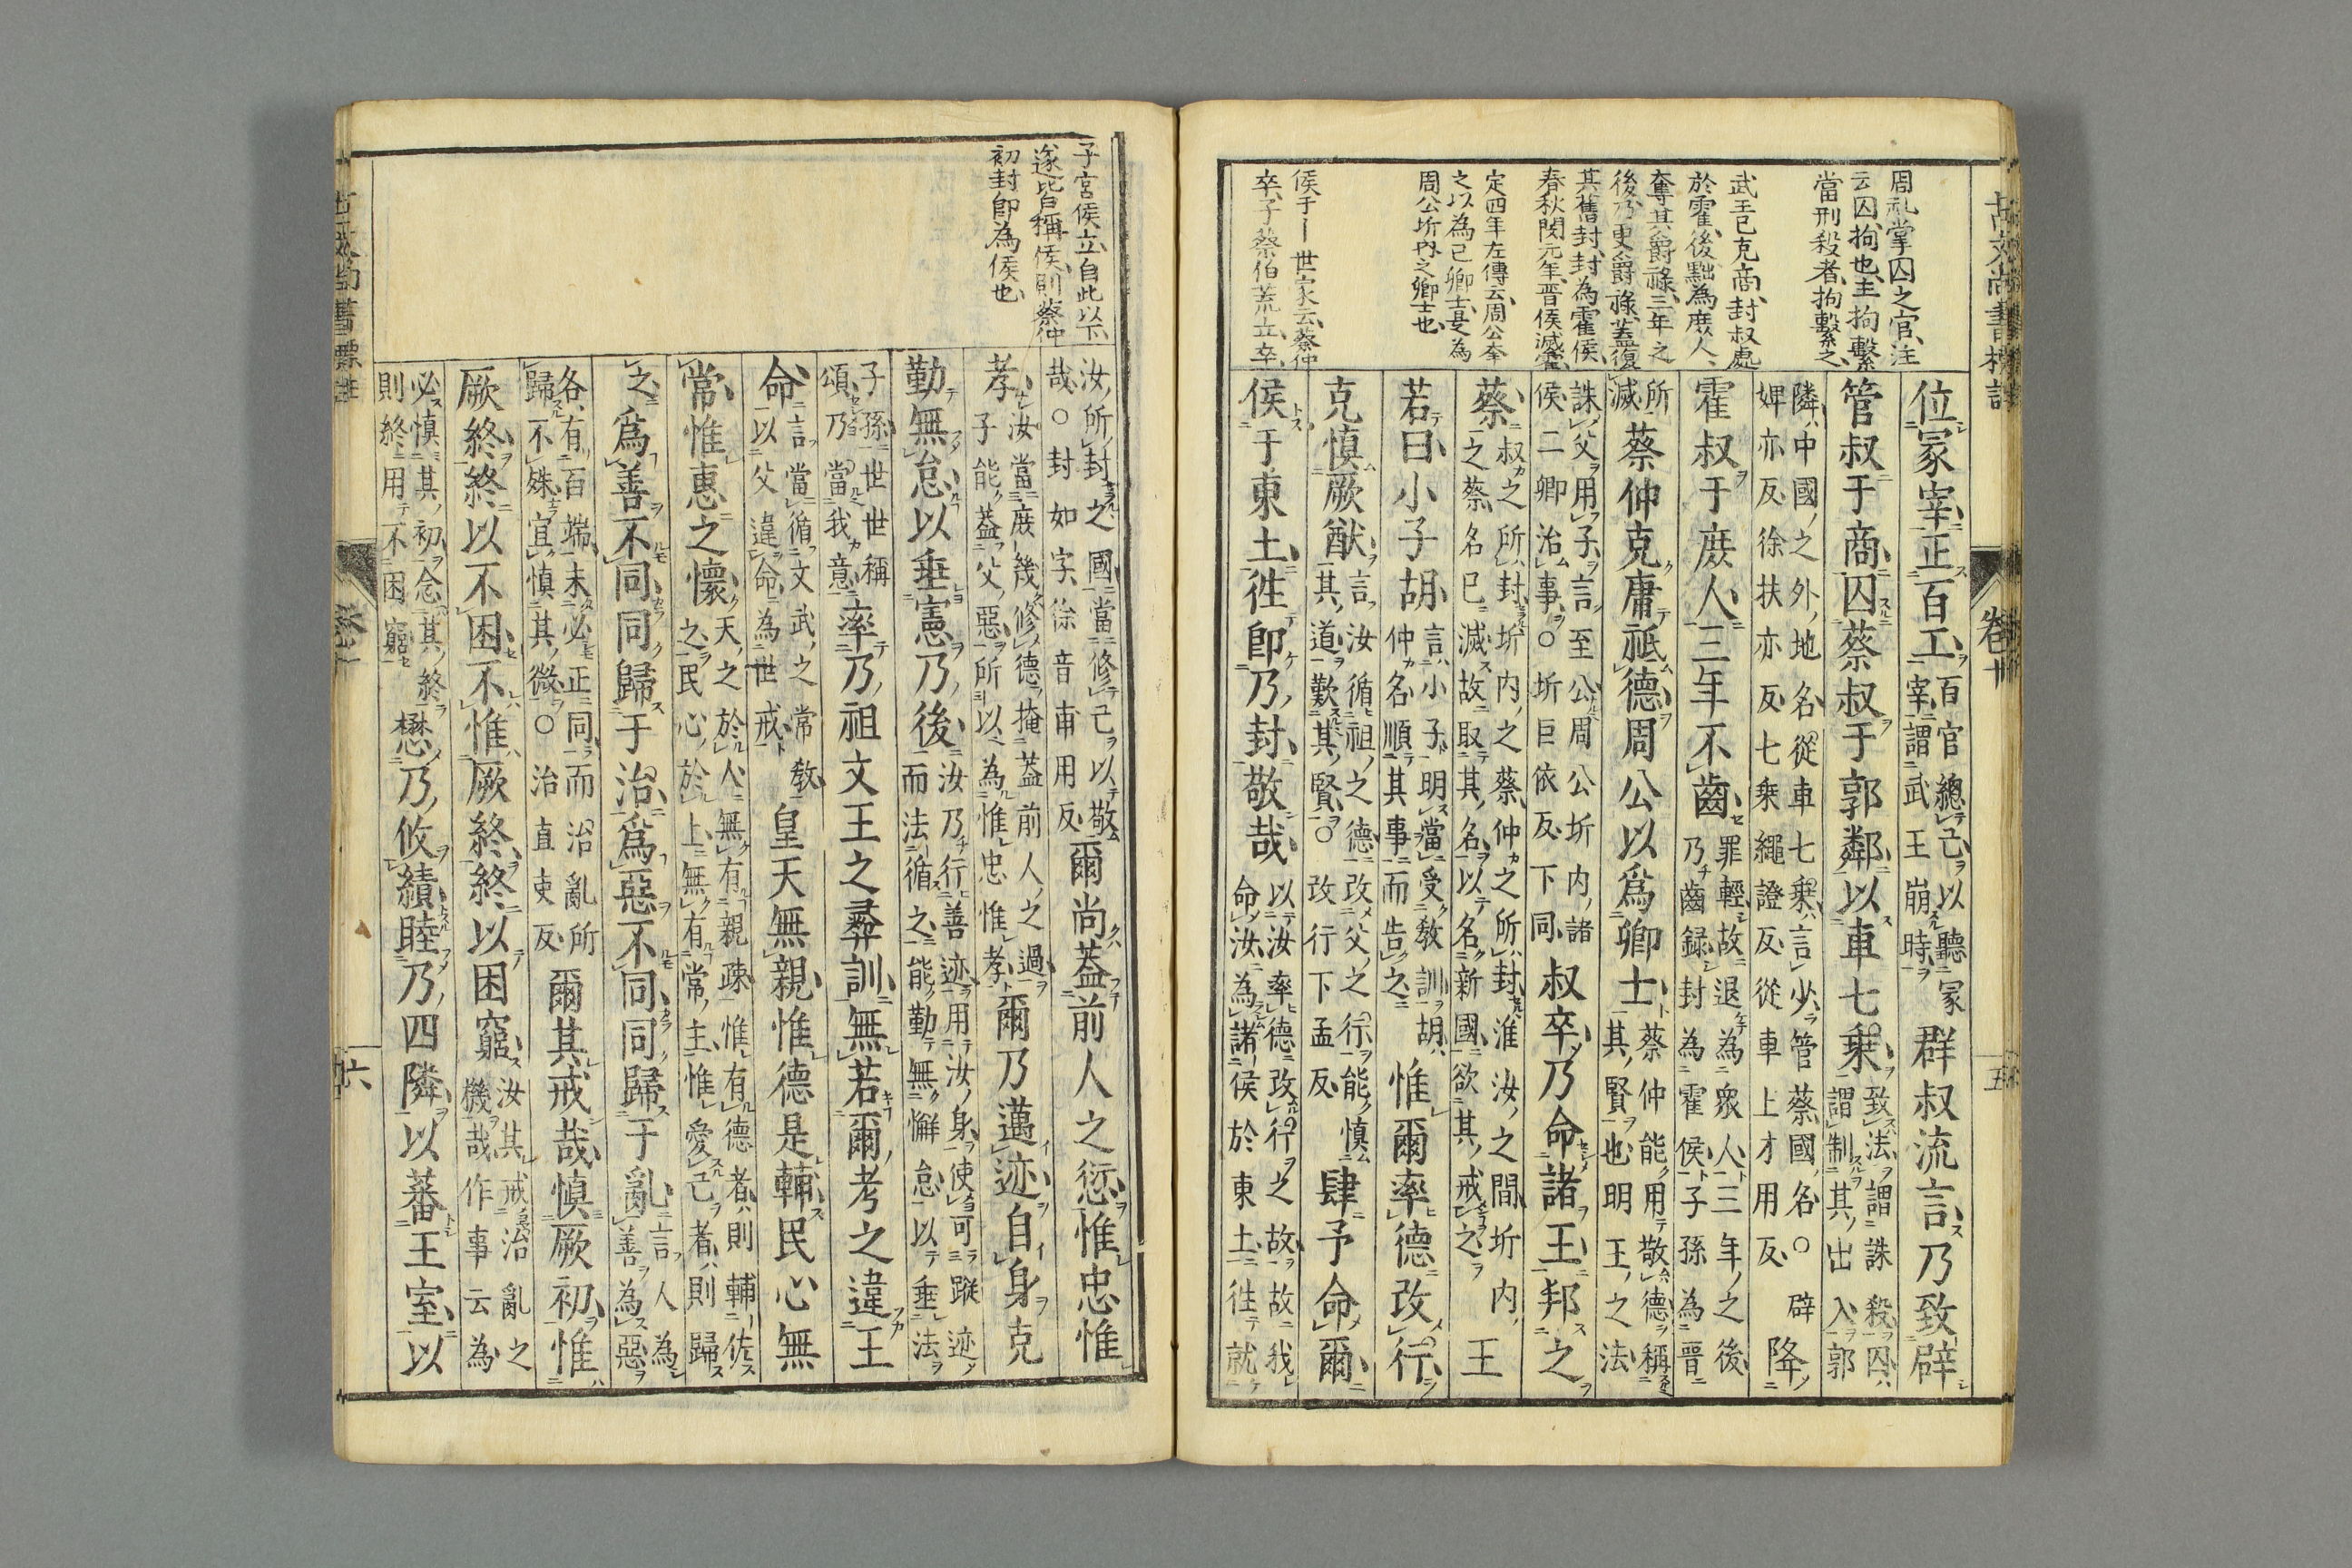 古文尚書標註
卷十一
五
周礼掌囚之官注
云囚拘也主拘繫
當刑殺者拘繫之
武王已克商封叔處
於霍後黜為庶人
奪其爵祿三年之
後乃更爵祿蓋復
其舊封封為霍侯
春秋閔元年晋侯滅霍
定四年左傳云周公奉
之以為己卿士是為
周公圻内之卿士也
侯于ー世家云蔡仲
卒子蔡伯荒立卒
位冢宰正百工百官總己以聽冢宰謂武王崩時群叔流言乃致辟
管叔于商囚蔡叔于郭鄰以車七乘致法謂誅殺囚謂制其出入郭
隣中國之外地名從車七乘言少管蔡國名○辟婢亦反徐扶亦反七乗繩證反從車上才用反降
霍叔于庶人三年不齒罪輕故退為衆人三年之後乃齒録封為霍侯子孫為晋
所滅蔡仲克庸祗德周公以爲卿士蔡仲能用敬德稱其賢也明王之法
誅父用子言至公周公圻内諸侯二卿治事○圻巨依反下同叔卒乃命諸王邦之
蔡叔之所封圻内之蔡仲之所封淮汝之間圻内之蔡名已滅故取其名以名新國欲其戒之王
若曰小子胡言小子明當受教訓胡仲名順其事而告之惟爾率德改行
克慎厥猷言汝循祖之德改父之行能慎其道歎其賢○改行下孟反肆予命爾
侯于東土往即乃封敬哉以汝率德改行之故故我命汝為諸侯於東土往就
子宮侯立自此以下
遂皆稱侯則蔡仲
初封即為侯也
汝所封之國當修己以敬哉○封如字徐音甫用反爾尚蓋前人之愆惟忠惟
孝汝當庶幾修德掩蓋前人之過子能蓋父惡所以為惟忠惟孝爾乃邁迹自身克
勤無怠以垂憲乃後汝乃行善迹用汝身使可蹤迹而法循之能勤無懈怠以垂法
子孫世世稱頌乃當我意率乃祖文王之彝訓無若爾考之違王
命言當循文武之常教以父違命為世戒皇天無親惟德是輔民心無
常惟惠之懷天之於人無有親疎惟有德者則輔佐之民心於上無有常主惟愛己者則歸
之爲善不同同歸于治爲惡不同同歸于亂言人為善為惡
各有百端未必正同而治亂所歸不殊宜慎其微○治直吏反爾其戒哉慎厥初惟
厥終終以不困不惟厥終終以困窮汝其戒治亂之機哉作事云為
必慎其初念其終則終用不困窮懋乃攸績睦乃四隣以蕃王室以
六